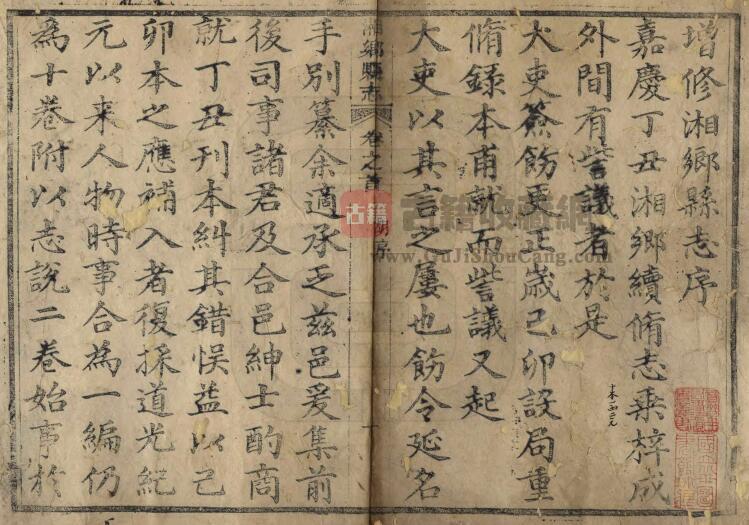 增修湘鄉縣志序
嘉慶丁丑湘鄉續脩志乘梓成
外間有訾議者於是
大吏簽飭更正嵗己卯設局重
脩錄本甫就而訾議又起
大吏以其言之屢也飭令延名
湘鄉縣志 卷之首 序 一
手別纂余適承乏茲邑爰集前
後司事諸君及合邑紳士酌商
就丁丑刊本糾其錯悞益以己
卯本之應補入者復採道光紀
元以来人物時事合為一編仍
為十卷附以志説二卷始事於
古籍
古籍收藏網
www.GuJiShouCang.com